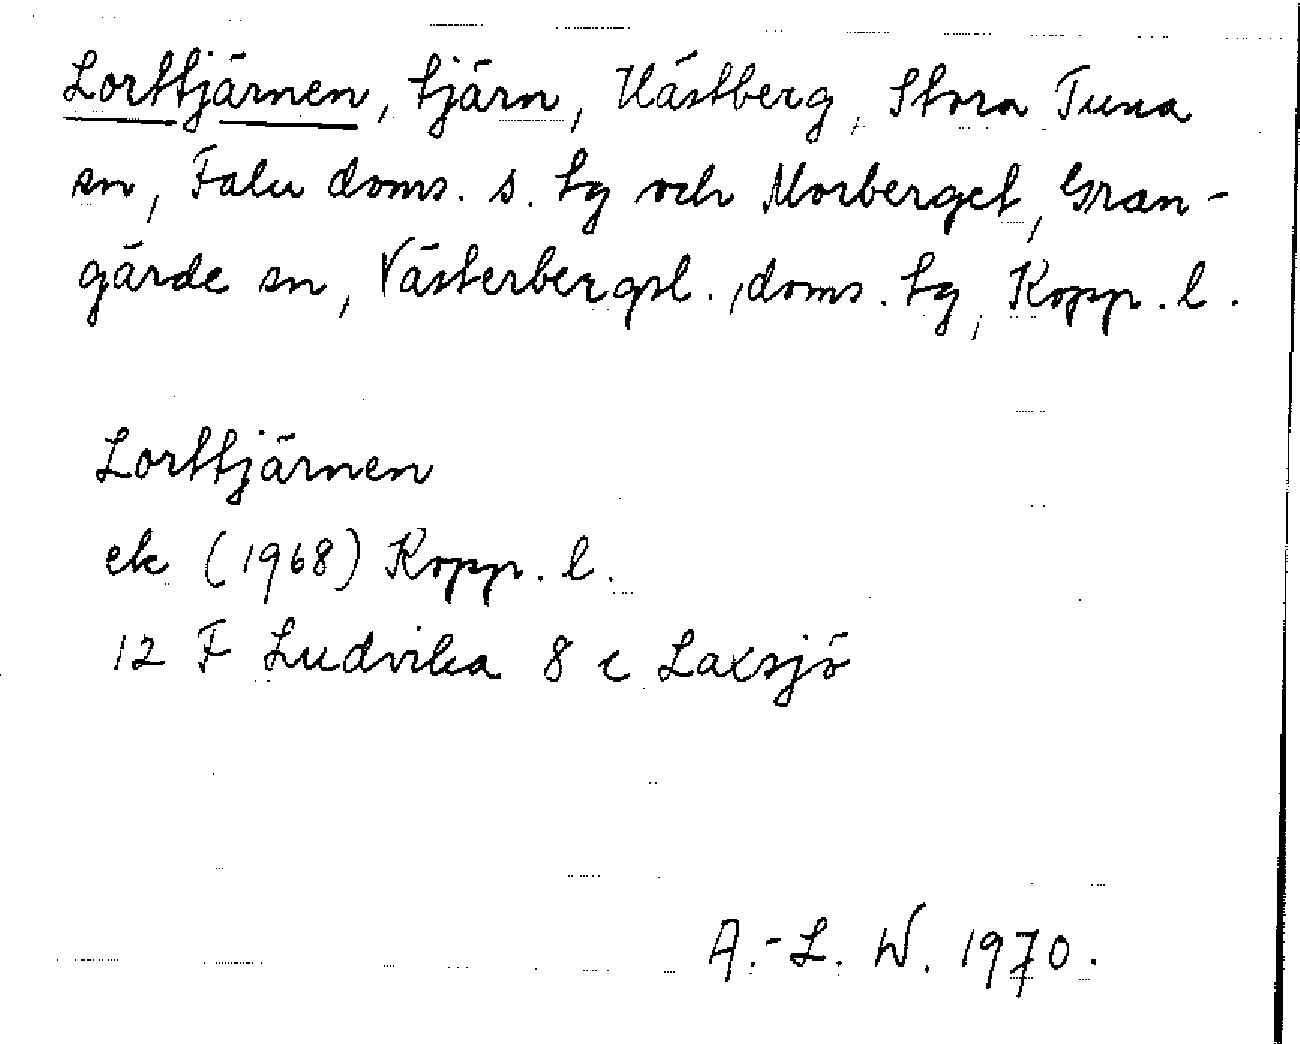 Lorttjärnen, tjärn, Hästberg, Stora Tuna
sn, Falu doms. s. tg och Morberget, Gran-
gärde sn, Västerbergsl. doms. tg, Kopp. l.
Lorttjärnen
ek (1968) Kopp. l.
12 F Ludvika 8 c Laxsjö
A.-L. W. 1970.